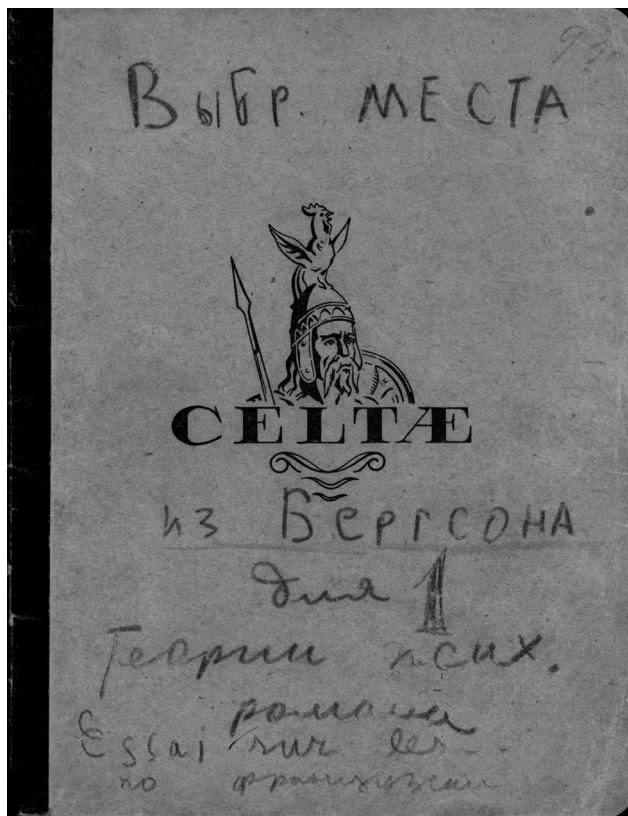 Выбр. МЕСТА
CELTÆ
из БЕРГСОНА
для 1
Теории псих.
романа
Essai sur les - -
по французски